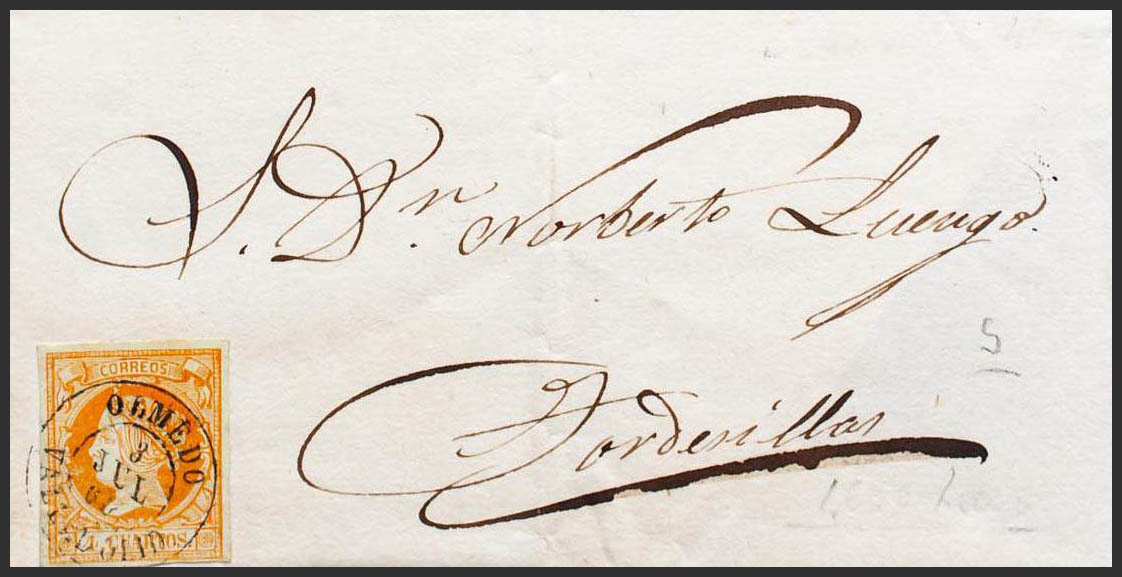 S. Dn. Norberto Luengo.
Tordesillas
CORREOS
OLMEDO
3
JUL
VALLADOLID
CUARTOS.
S